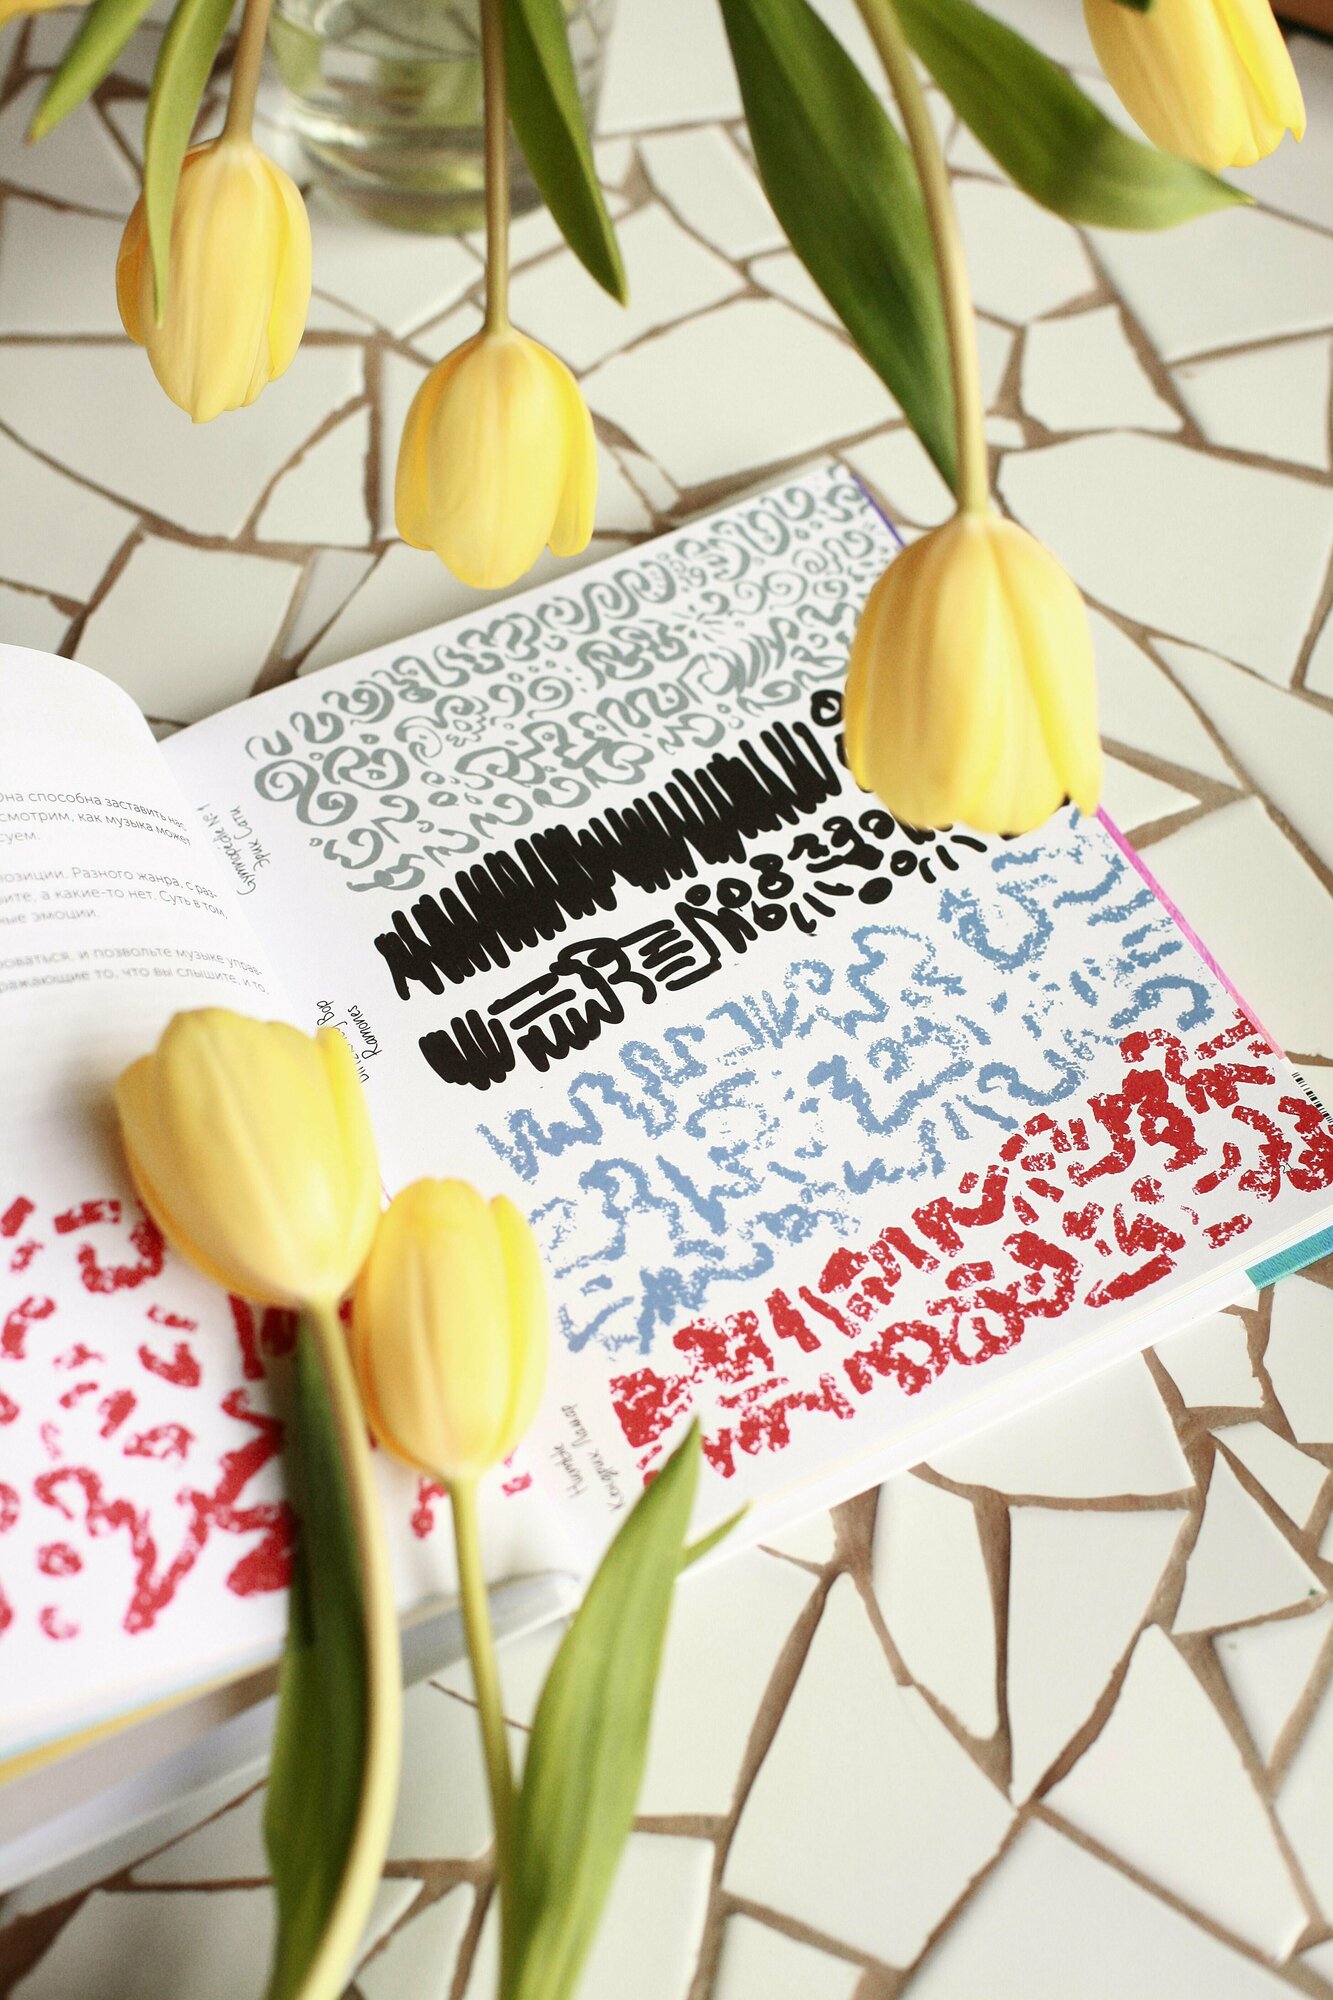 Она способна заставить нас
смотрим, как музыка может
суем.
позиции. Разного жанра, с раз-
вите, а какие-то нет. Суть в том,
ные эмоции.
позвольте музыке управ-
ражающие то, что вы слышите, и то,
Gymnopédie № 1
Эрик Сати
Bop
Ramones
Humble
Кендрик Ламар